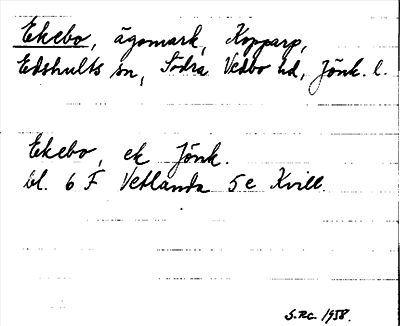 Ekebo, ägomark, Kopparp,
Edshults sn, Södra Vedbo hd, Jönk. l.
Ekebo, ek Jönk.
bl. 6 F Vetlanda 5 e Kvill.
S.RG. 1958.